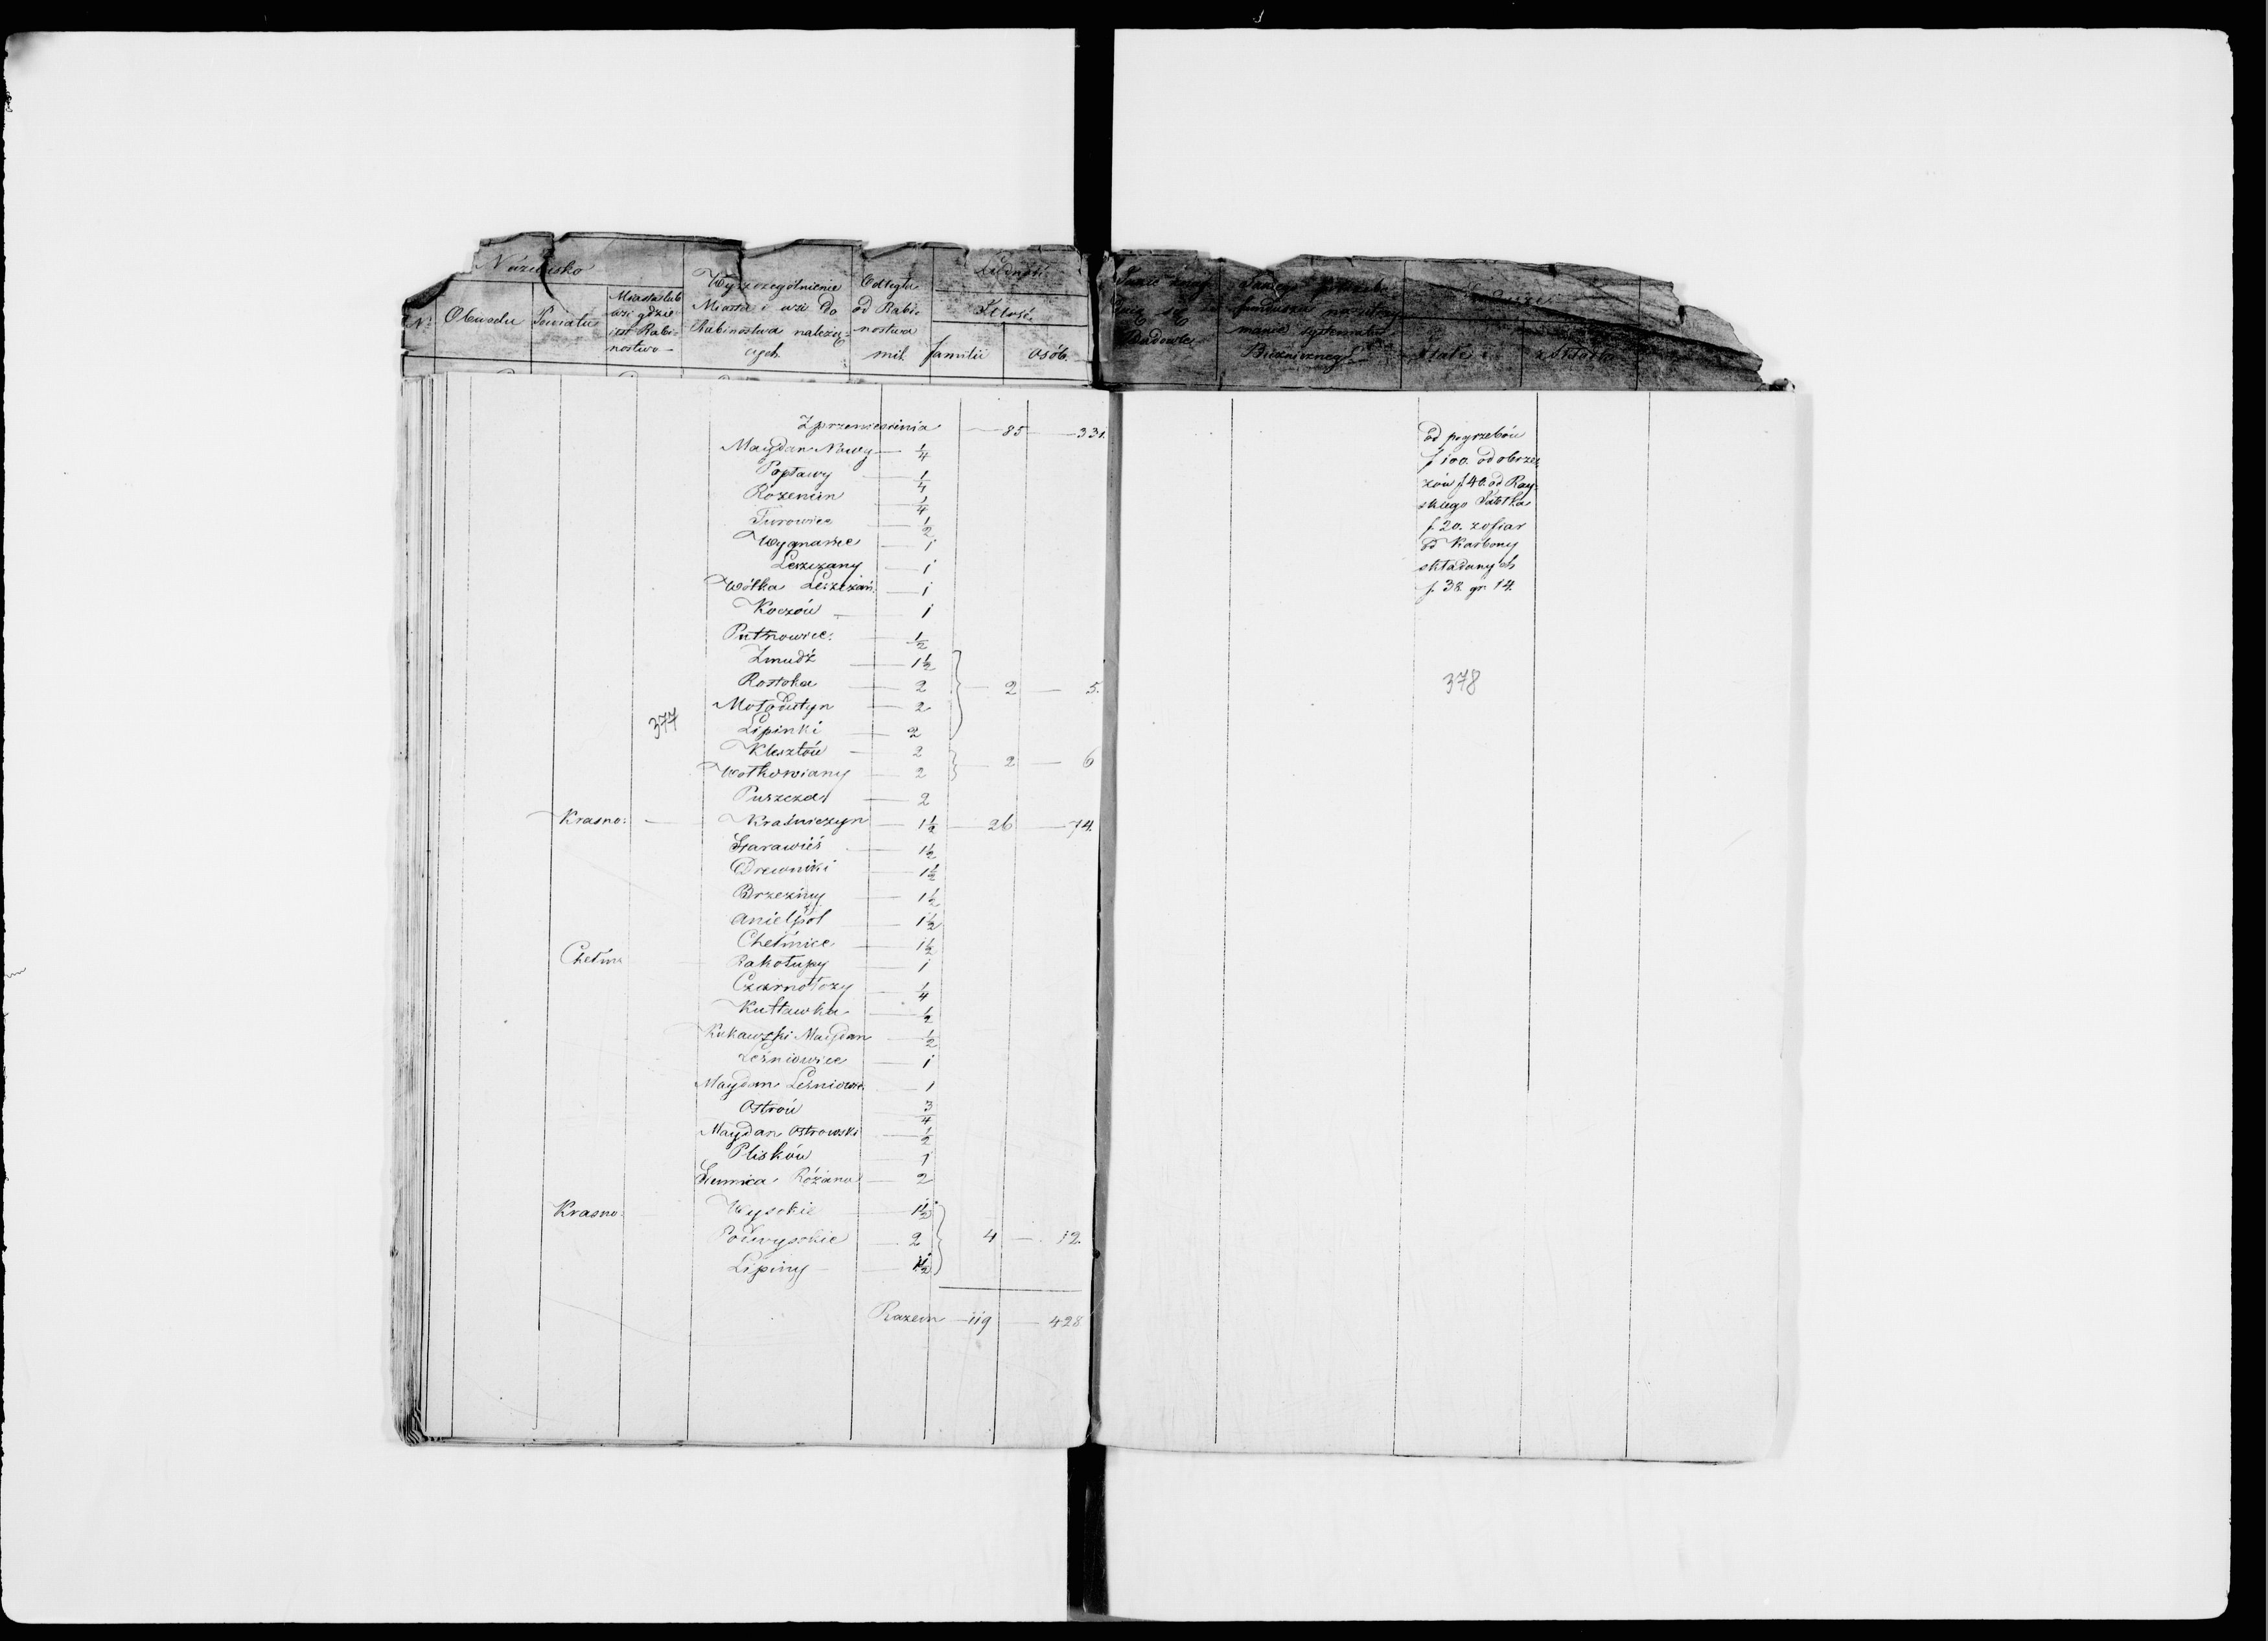 Nazwisko
Nr.
Obwodu
Powiatu
Miasta lub wsi gdzie iest Rabinostwo
Wyszczególnienie Miasta i wsi do Rabinostwa należących
Odległ. od Rabinostwa mil
Ludność
Ilość
familii
osób.
funduszu na utrzymanie
Bóżnicznego
stałe
Z przeniesienia — 85 — 331.
Maydan Nowy — 1/4
Popławy — 1/4
Rozenin — 1/4
Turowiec — 1/2
Wygnańce — 1
Leszczany — 1
Wólka Leszczań. — 1
Koczów — 1
Putnowice. — 1/2
Zmudź — 1 1/2
Rostoka — 2 — 2 — 5.
Mołodutyn — 2
377
Lipinki — 2
Klesztów — 2
Wołkowiany — 2 — 2 — 6
Puszcza — 2
Krasno: — Kraśniczyn — 1 1/2 — 26 — 74.
Starawieś — 1 1/2
Drewniki — 1 1/2
Brzeziny — 1 1/2
Anielpol — 1 1/2
Chełmice — 1 1/2
Chełm Rakołupy — 1
Czarnołozy — 1/4
Kułtawka — 1/2
Kukawski Maydan — 1/2
Leśniowice — 1
Maydan Leśniow. — 1
Ostrów — 3/4
Maydan Ostrowski — 1/2
Plisków — 1
Siennica Różana — 2
Krasno. Wysokie — 1 1/2
Podwysokie — 2 4 — 12.
Lipiny — 1 1/2
Razem — 119 — 428
od pogrzebów
f 100. od obrze
zów f 40. od Ray
skiego Jabłka
f. 20. z ofiar
do Karbony
składanych
f. 38 gr 14.
378